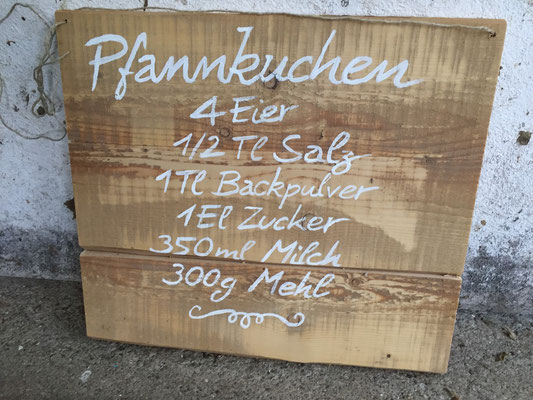 Pfannkuchen
4 Eier
1/2 Tl Salz
1Tl Backpulver
1El Zucker
350ml Milch
300g Mehl